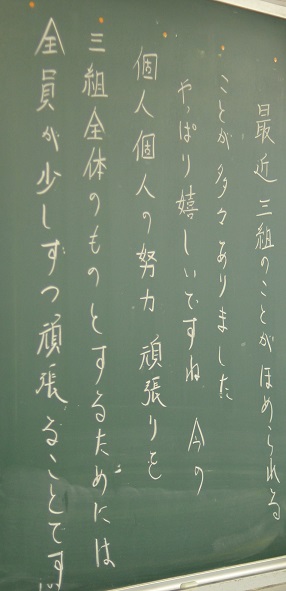 最近三組のことがほめられる
ことが多々ありました
やっぱり嬉しいですね 今の
個人個人の努力 頑張りを
三組全体のものとするためには
全員が少しずつ頑張ることです